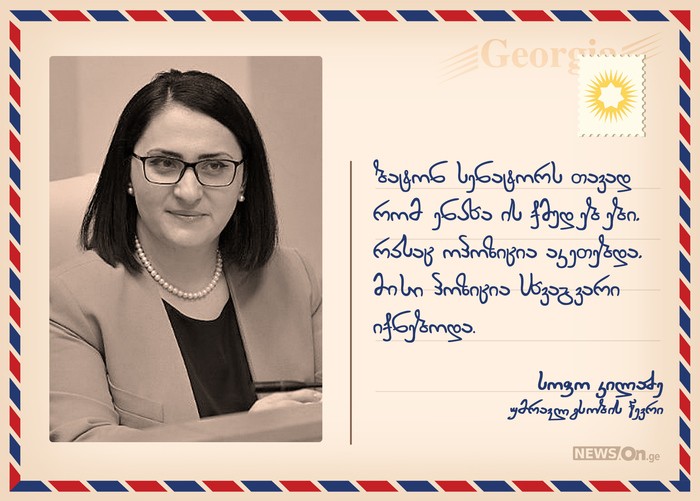 Georgia
ბატონ სენატორს თავად
რომ ენახა ის ქმედებები.
რასაც ოპოზიცია აკეთებდა.
მისი პოზიცია სხვაგვარი
იქნებოდა.
სოფო კილაძე
უმრავლესობის წევრი
NEWS.On.ge